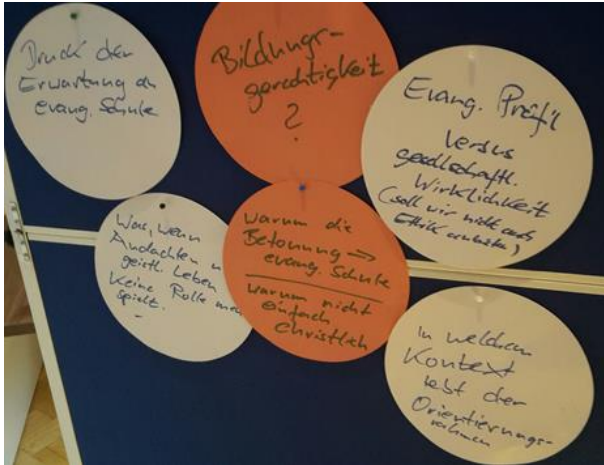 Druck der
Erwartung an
evang. Schule
Bildungs-
gerechtigkeit
?
Evang. Profil
versus
gesellschaftl.
Wirklichkeit
(soll wir nicht auch
Ethik anbieten)
Was, wenn
Andachten u
geistl. Leben
keine Rolle mehr
spielt.
warum die
Betonung →
evang. Schule
warum nicht
einfach
christlich
in welchem
Kontext
lebt der
Orientierungs-
rahmen